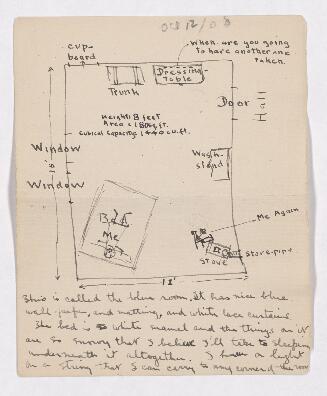 Oct 12/08
When are you going
to have another one
taken.
Cup-
board
Trunk
Dressing
Table
Door
Hall
Height 8 feet
Area = 180 sq. ft.
Cubical Capacity 1440 cu. ft.
Window
Window
Wash
stand
15'
Bed
Me
Me Again
Stove-pipe
Stove
12'
This is called the blue room. It has nice blue
wall-paper, and matting, and white lace curtains
The bed is white enamel and the things on it
are so snowy that I believe I'll take to sleeping
underneath it altogether. I have a light
on a string that I can carry to any corner of the room